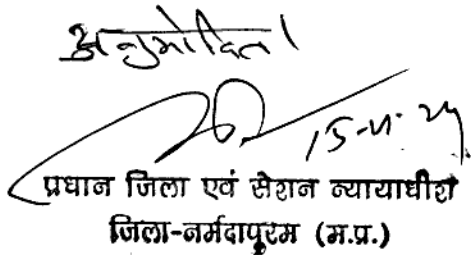 अनुमोदित।
प्रधान जिला एवं सेशन न्यायाधीश
जिला-नर्मदापुरम (म.प्र.)